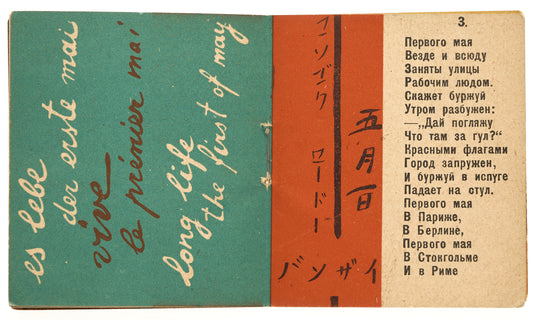 es lebe
der erste mai
vive
le prémier mai
long life
the first of may
五月一日
ロードー
バンザイ
3.
Первого мая
Везде и всюду
Заняты улицы
Рабочим людом.
Скажет буржуй
Утром разбужен:
—„Дай погляжу
Что там за гул?"
Красными флагами
Город запружен,
И буржуй в испуге
Падает на стул.
Первого мая
В Париже,
В Берлине,
Первого мая
В Стокгольме
И в Риме